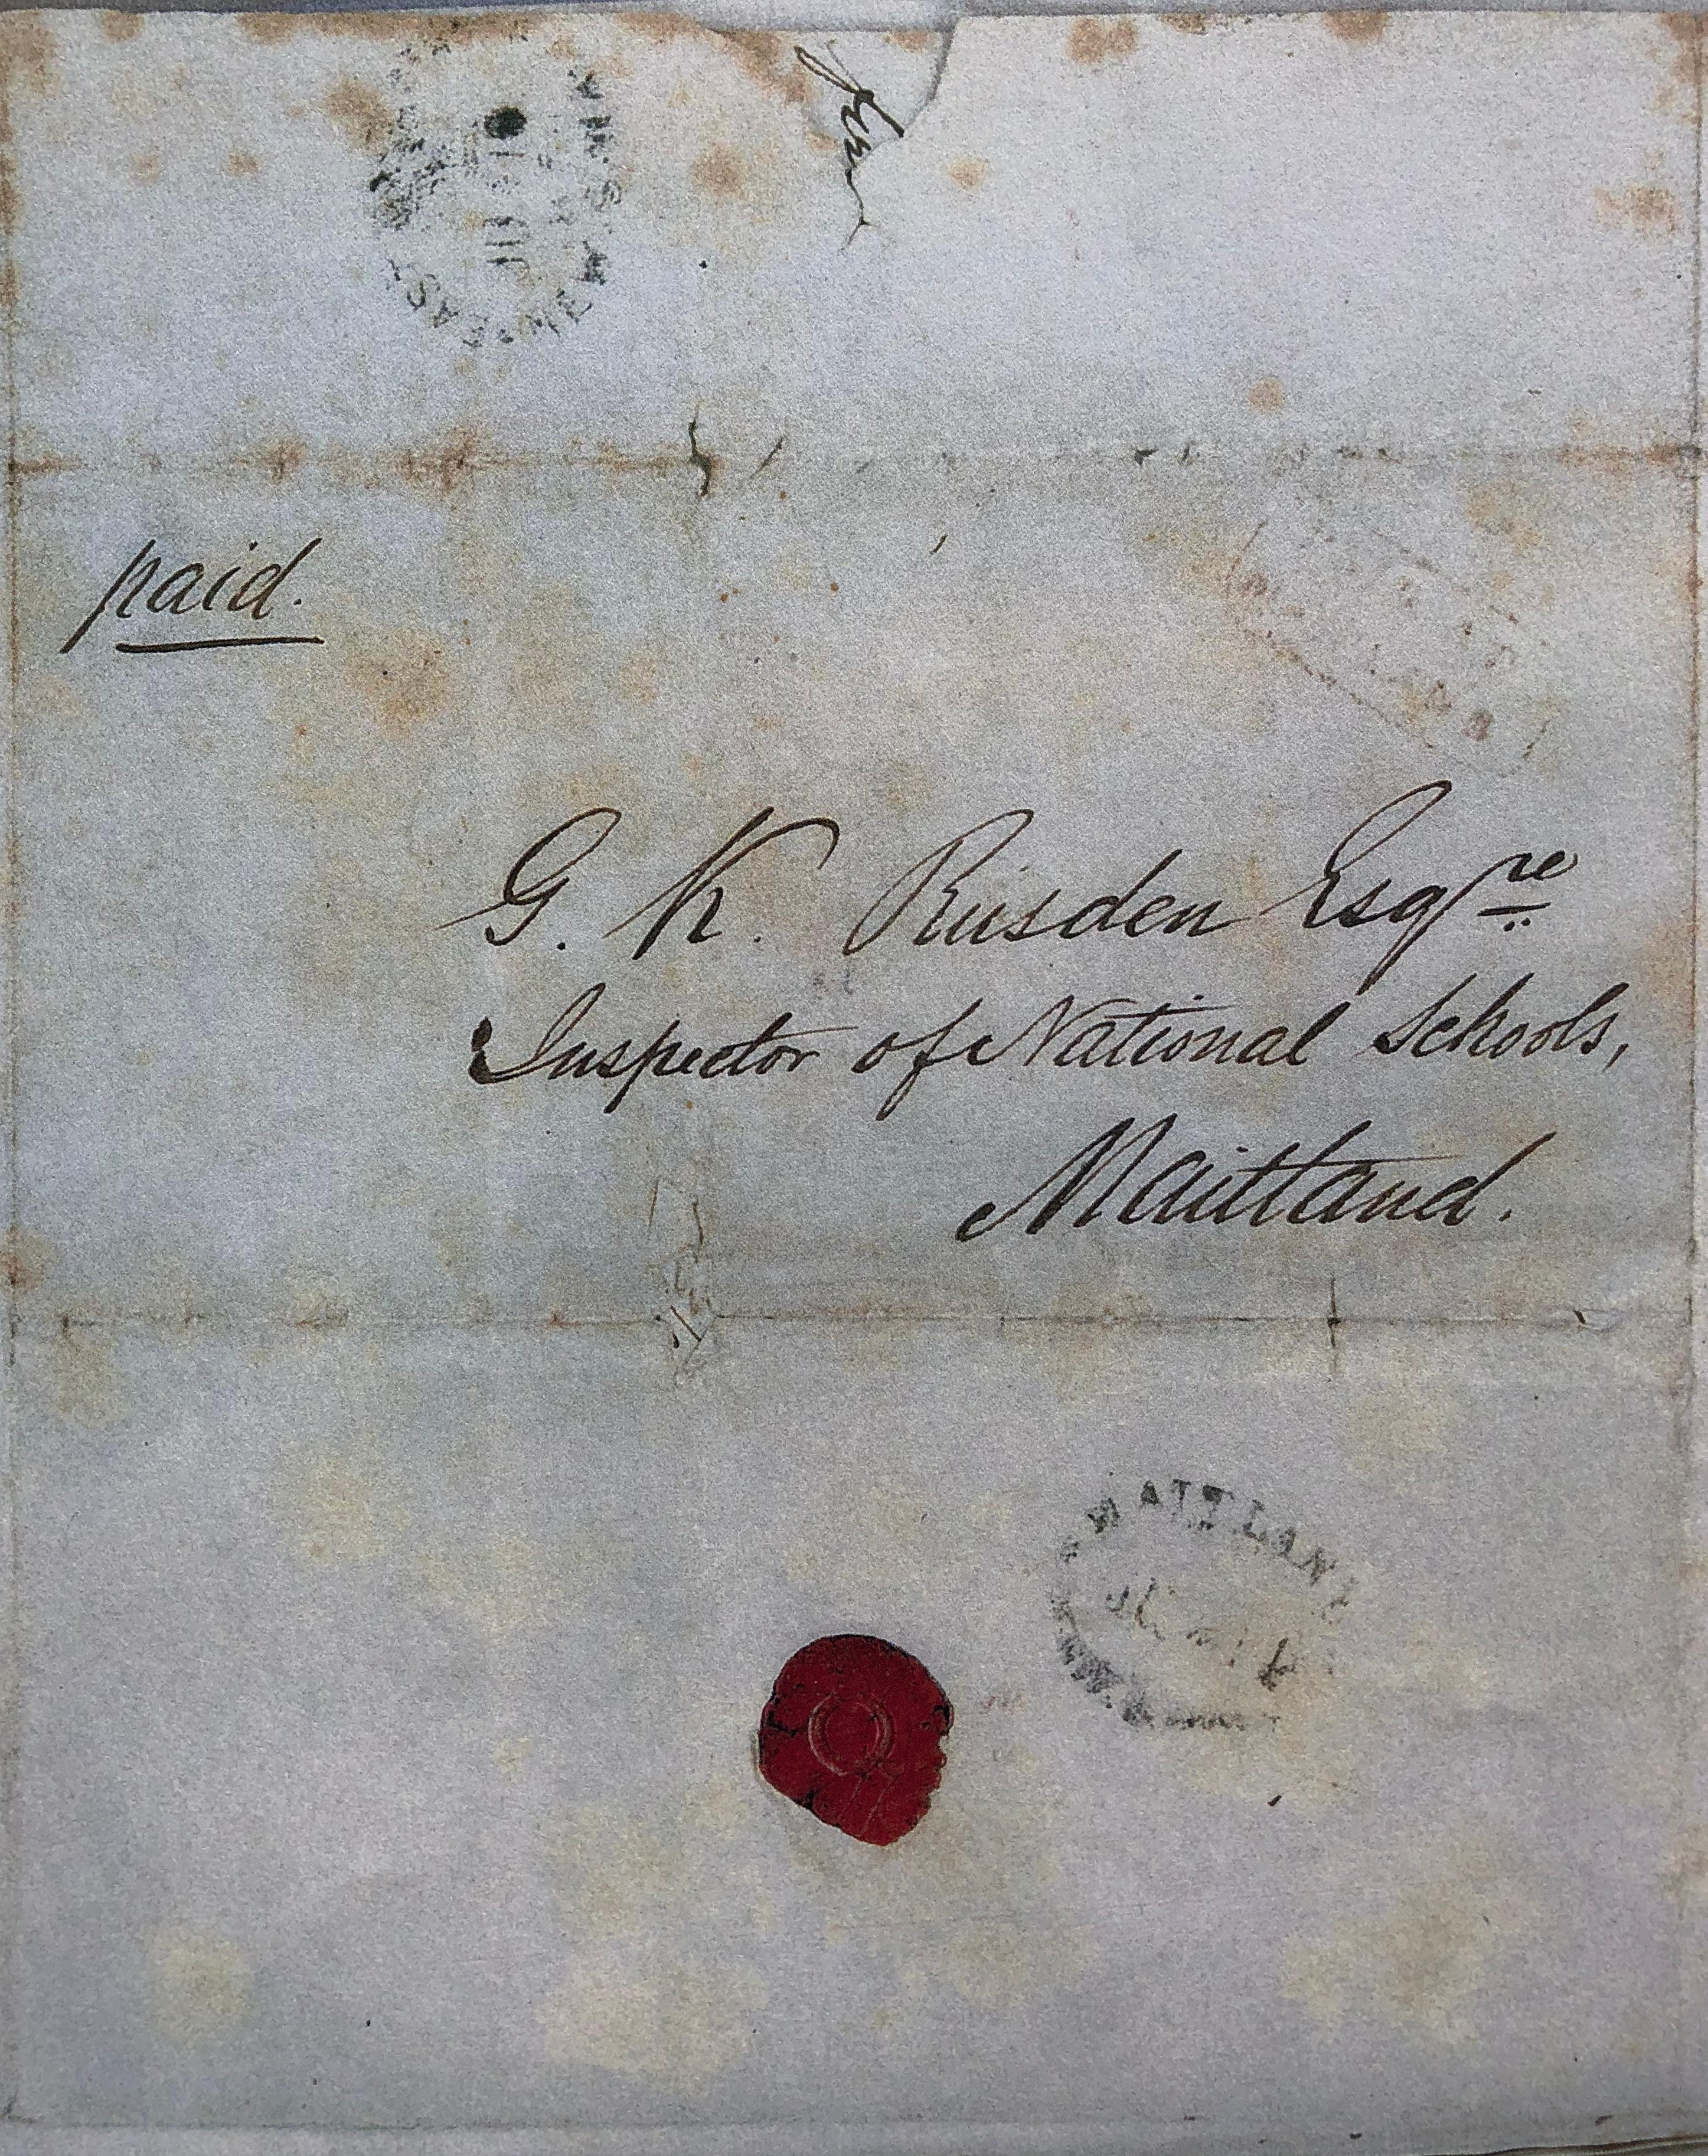 paid.
G. K. Rusden Esqre
Inspector of National Schools,
Maitland.
MAITLAND